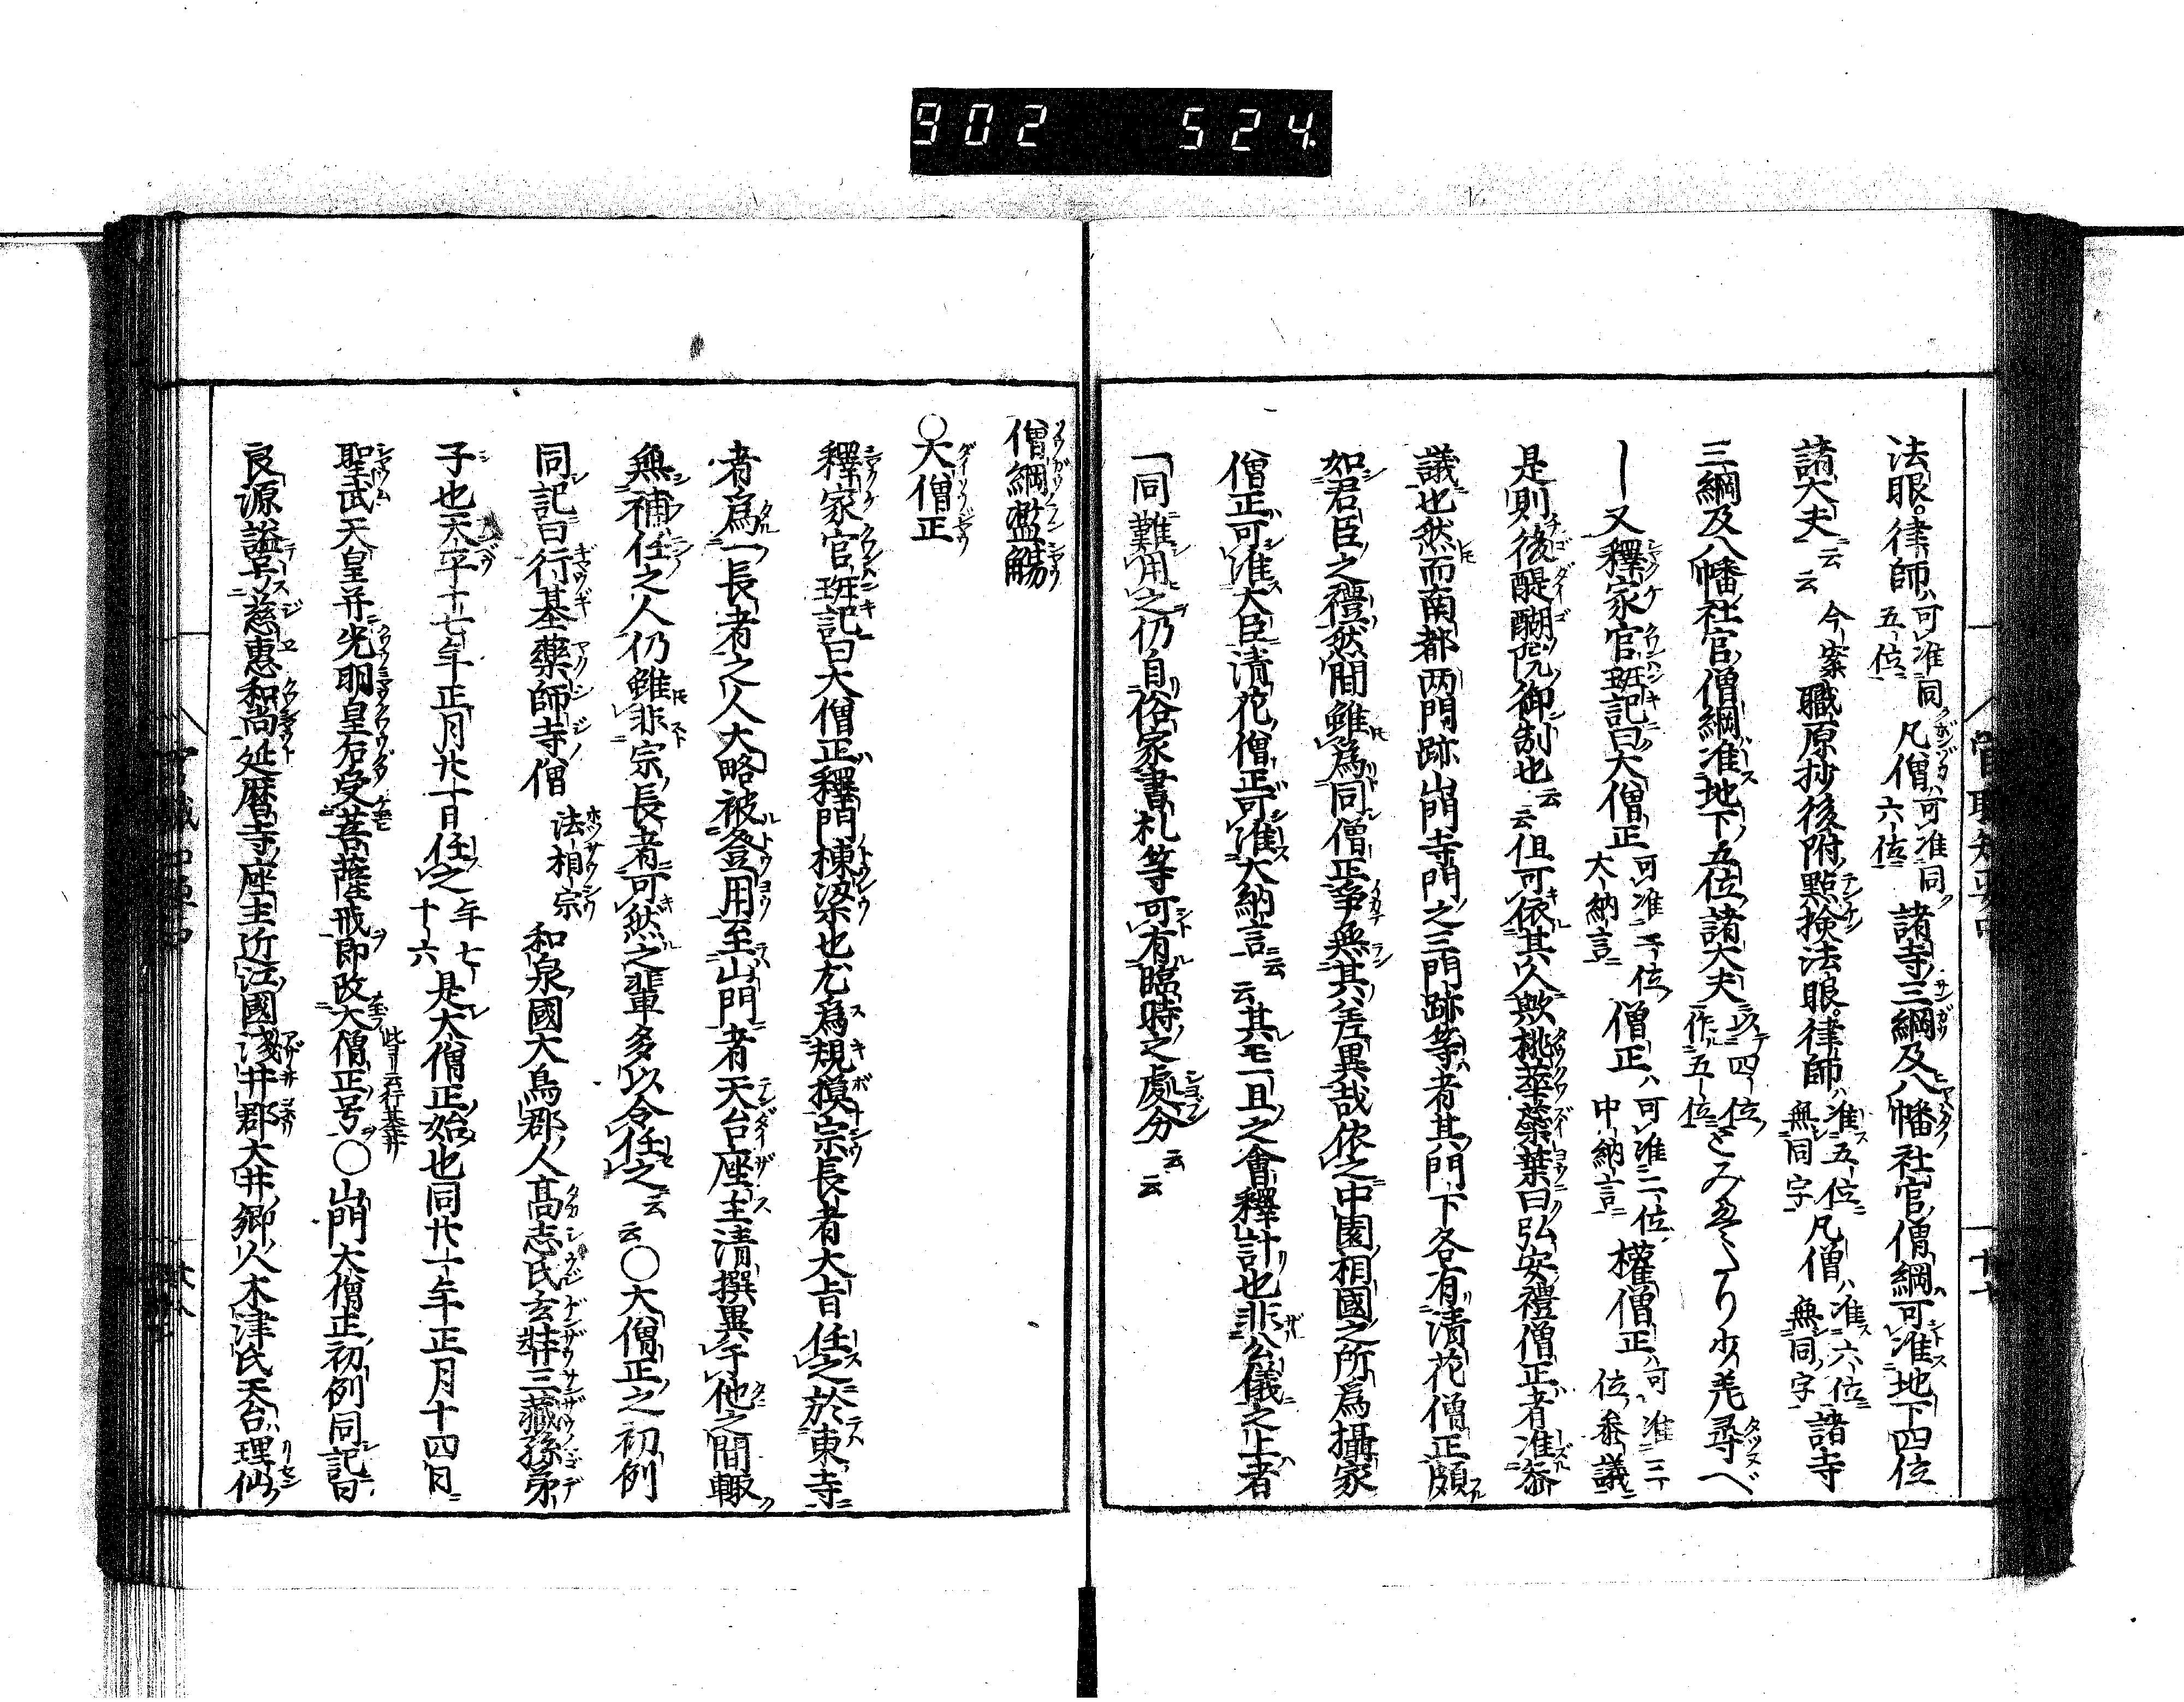 902 524
法眼。律師ハ可准同五位凡僧ハ可准同六位諸寺三綱及八幡社官僧綱可准地下四位
諸大夫云云今案職原抄後附點撿法眼。律師ハ准五位無同字凡僧ハ准六位無同字諸寺
三綱及八幡社官僧綱准地下五位諸大夫
又釋家官班記曰大僧正可准二位大納言僧正ハ可准三位中納言權僧正ハ可准三位參議
是則後醍醐院御制也云云但可依其人歟桃華蘂葉曰弘安禮僧正者准參
議也然而南都両門跡山門寺門之三門跡等者其門下各有清花僧正頗
如君臣之禮然間雖為同僧正爭無其差異哉依之中園相國之所為攝家
僧正可准大臣清花僧正可准大納言云云其一旦之會釋計也非公儀之上者
一同難用之仍自俗家書札等可有臨時之處分云云
僧綱濫觴
〇大僧正
釋家官班記曰大僧正釋門棟梁也尤為規摸宗長者大旨任之於東寺
者為一長者之人大略被登用至山門者天台座主清撰異于他之間輙
無補任之人仍雖非宗長者可然之輩多以令任之云云〇大僧正之初例
同記曰行基藥師寺僧法相宗和泉國大鳥郡人高志氏玄弉三藏孫弟
子也天平十七年正月廿一日任之年七十六是大僧正始也同廿一年正月十四日
聖武天皇并光明皇后受菩薩戒即改大僧正号〇山門大僧正初例同記曰
良源謚号慈惠和尚延暦寺座主近江國淺井郡大井郷人木津氏天台理仙